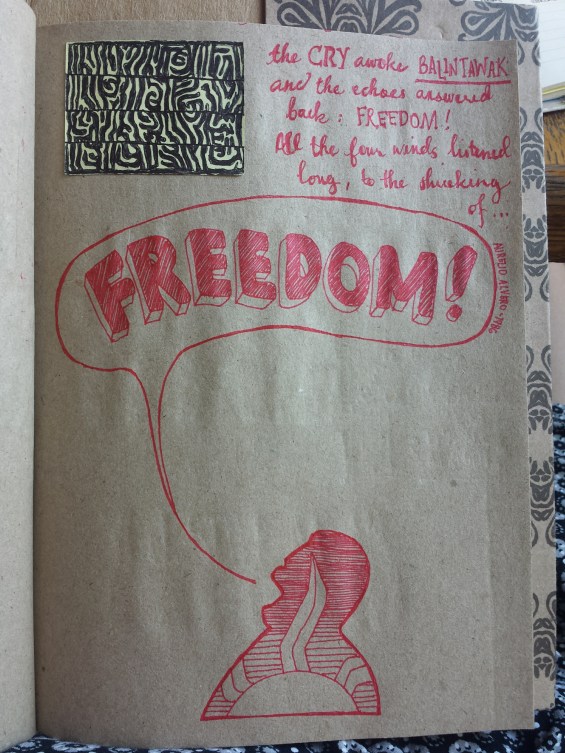 the CRY awoke BALINTAWAK
and the echoes answered
back: FREEDOM!
All the four winds listened
long, to the shrieking
of...
FREEDOM!
AURELIO ALVERO